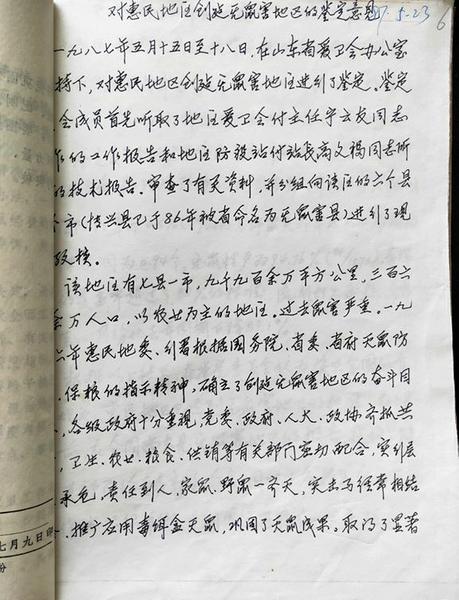 对惠民地区创建无鼠害地区的鉴定意见
87.5.23
6
一九八七年五月十五日至十八日,在山东省爱卫会办公室
持下,对惠民地区创建无鼠害地区进行了鉴定。鉴定
会成员首先听取了地区爱卫会付主任宇云友同志
作的工作报告和地区防疫站付站长高文福同志所
的技术报告。审查了有关资料,并分组向该区的六个县
市(博兴县已于86年被省命名为无鼠害县)进行了现
考核。
该地区有七县一市,九千九百余万平方公里,三百六
余万人口,以农业为主的地区。过去鼠害严重。一九
六年惠民地委、行署根据国务院、省委、省府灭鼠防
保粮的指示精神,确立了创建无鼠害地区的奋斗目
,各级政府十分重视,党委、政府、人大、政协齐抓共
,卫生、农业、粮食、供销等有关部门密切配合,实行层
承包,责任到人,家鼠、野鼠一齐灭,突击与经常相结
、推广应用毒饵盒灭鼠,巩固了灭鼠成果。取得了显著
七月九日印
份